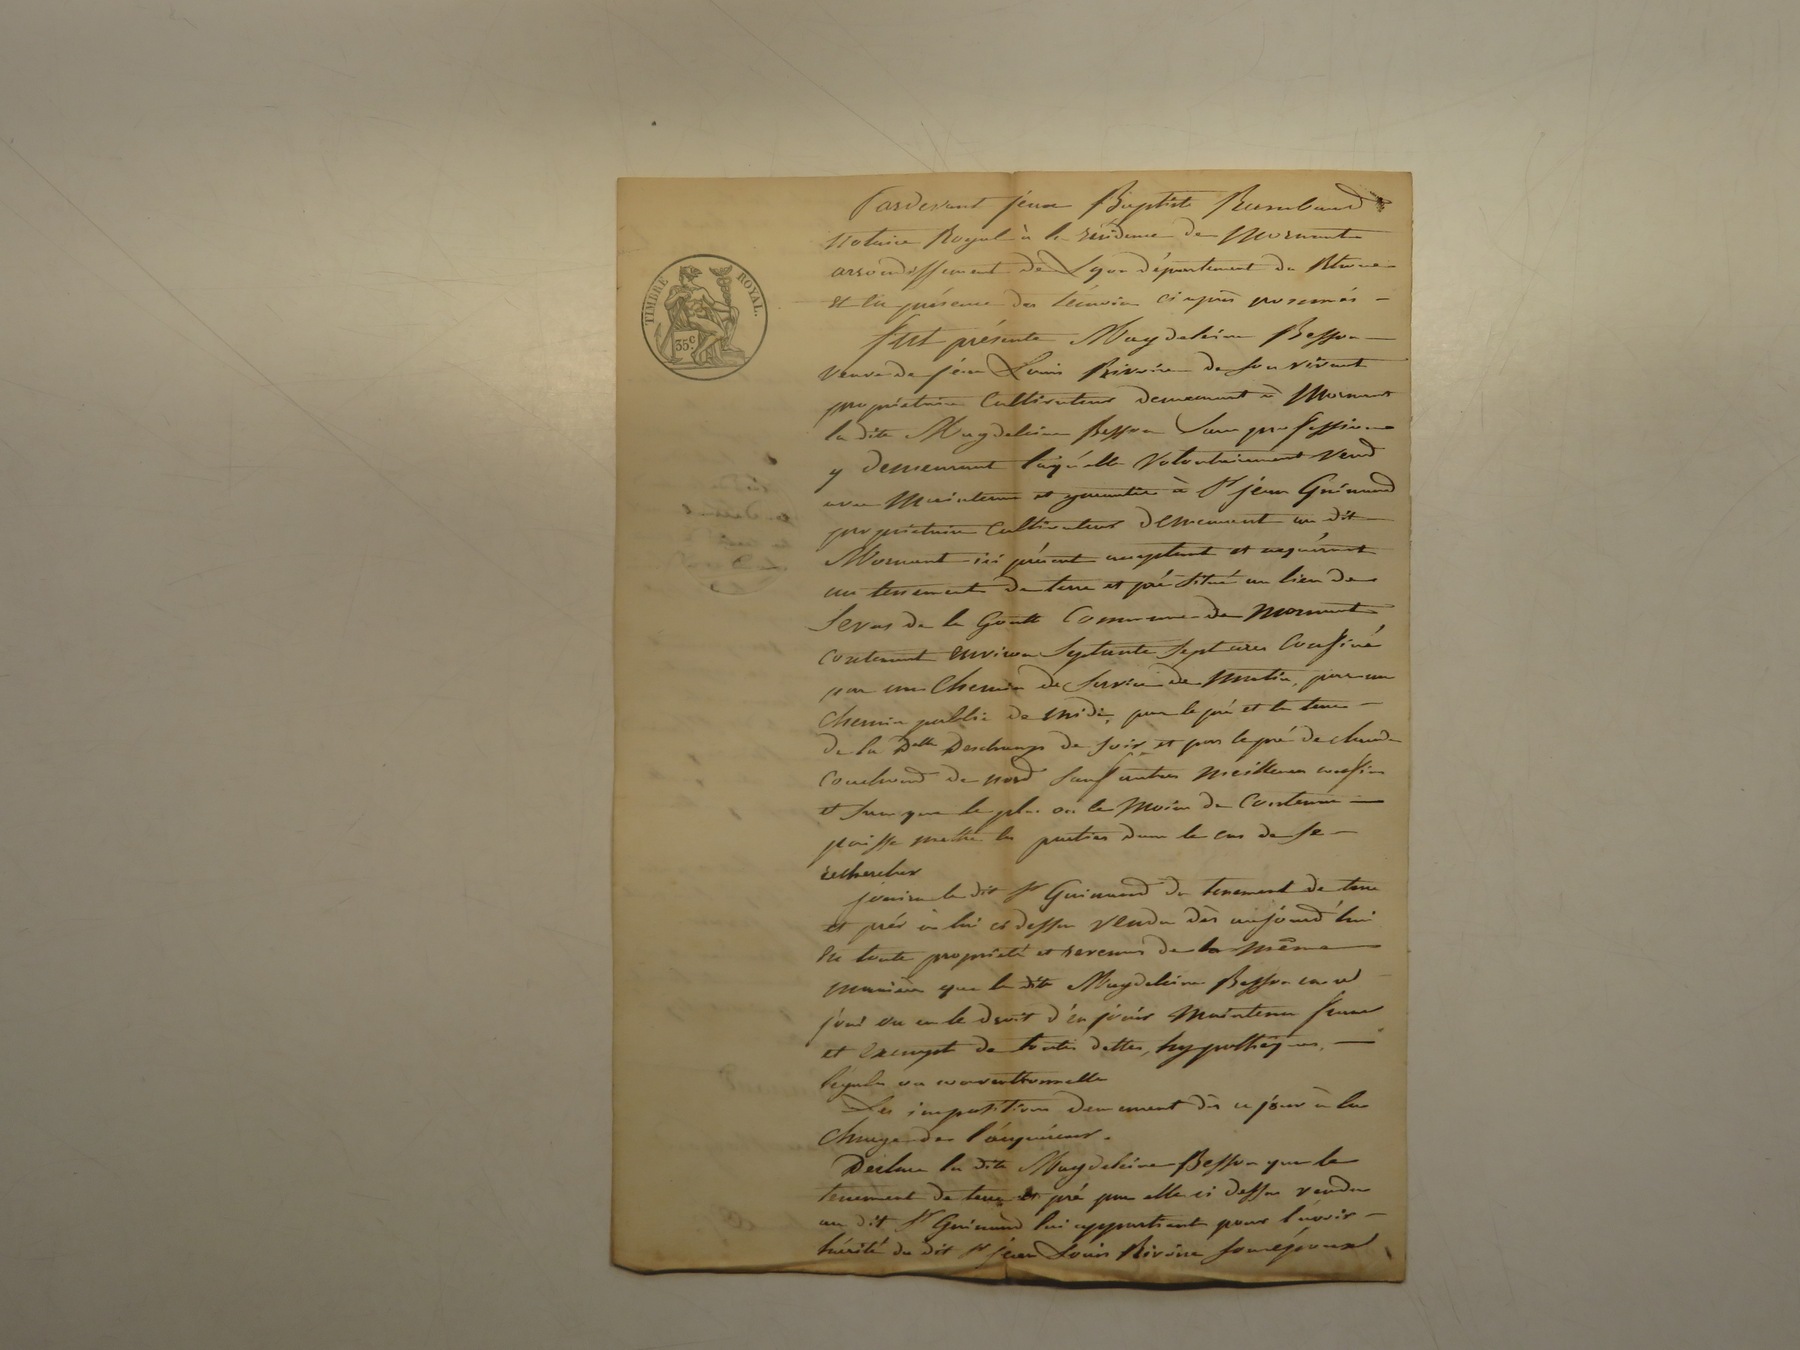 Pardevant jean Baptiste
notaire Royal à la résidence de Mornant
arrondissement de Lyon département du Rhône
et en présence des témoins ci après nommés
TIMBRE ROYAL.
35c
Fut présente Magdeleine Besson
veuve de jean Louis Rivoire de son vivant
propriétaire cultivateur demeurant à Mornant
la dite Magdeleine Besson sans profession
y demeurant laquelle volontairement vend
avec maintenue et garantie à Sr jean Guinand
propriétaire cultivateur demeurant au dit
Mornant ici présent acceptant et acquérant
un tenement de terre et pré situé au lieu de
de la Goutte commune de Mornant
contenant environ septante sept ares confiné
par un chemin de service de matin, par un
chemin public de midi, par le pré et la terre
de la Delle Deschamps de soir, et par le pré de claude
de nord sauf autres meilleurs confins
et sans que le plus ou le moins de contenue
puisse mettre les parties dans le cas de se
rechercher
jouira le dit Sr Guinand du tenement de terre
et prés à lui ci dessus vendu dès aujourd'hui
en toute propriété et revenus de la même
manière que la dite Magdeleine Besson en a
joui ou eu le droit d'en jouir maintenu franc
et exempt de toutes dettes, hypothèques,
légales ou conventionnelles
Les impositions demeurent dès ce jour à la
charge de l'acquéreur.
Déclare la dite Magdeleine Besson que le
tenement de terre et pré par elle ci dessus vendu
au dit Sr Guinand lui appartient pour l'avoir
hérité du dit Sr jean Louis Rivoire son époux